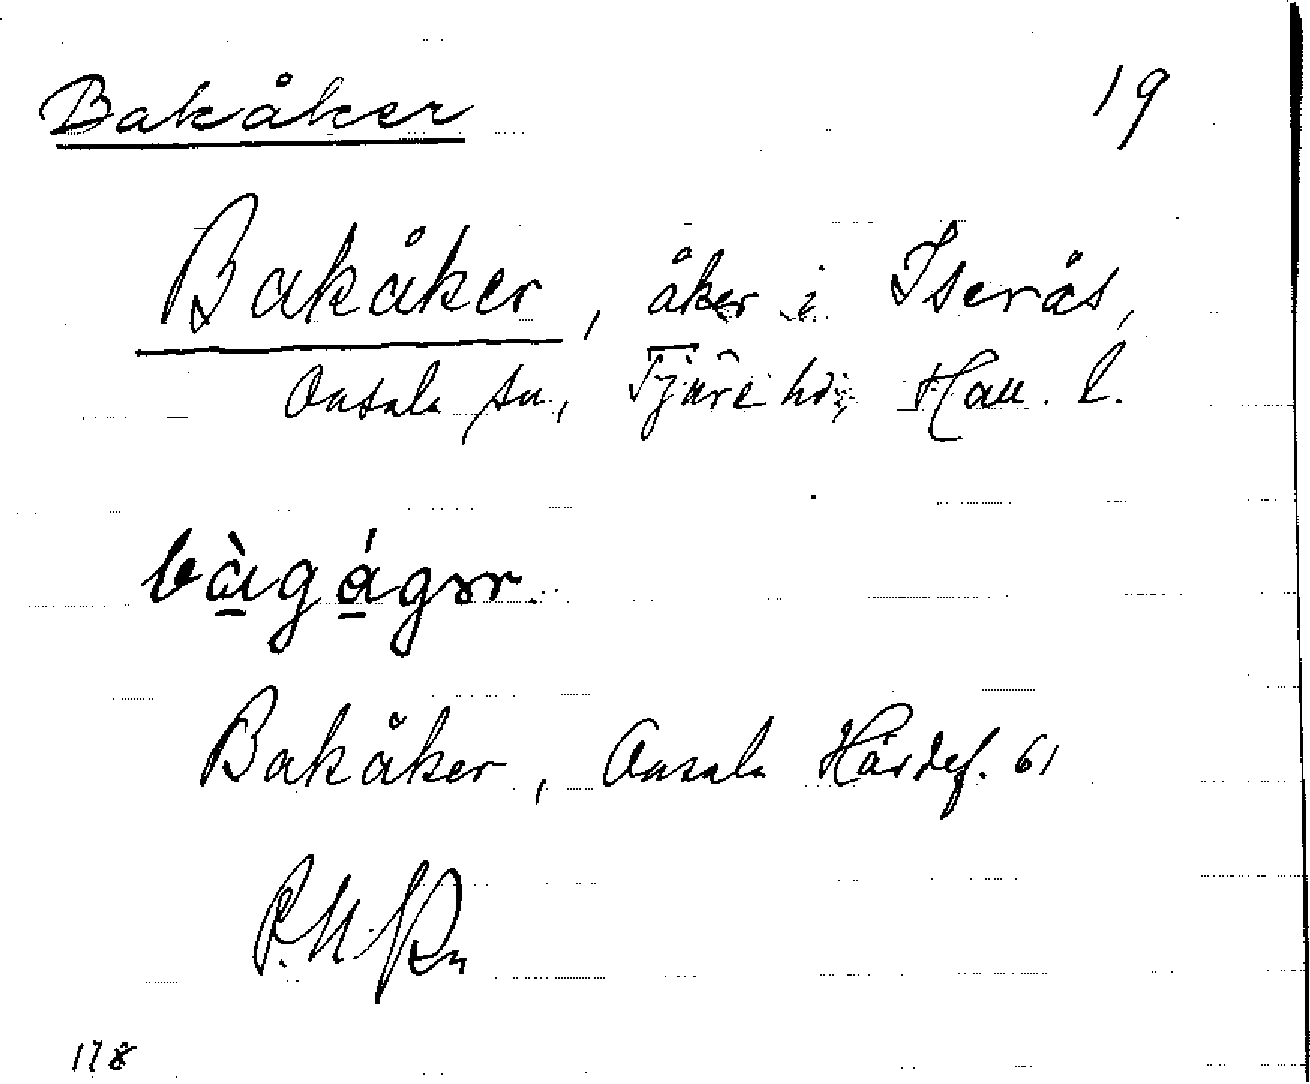 Bakåker 19
Bakåker, åker i Iserås,
Onsala sn, Fjäre hd, Hall. l.
bàgágər.
Bakåker, Onsala Härdef. 61
178